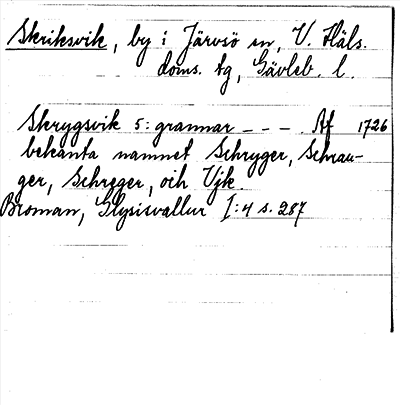 Skriksvik, by i Järvsö sn, V. Häls.
doms. tg, Gävleb. l.
Skrygsvik 5: grannar - - - . Af 1726
bekanta namnet Schryger, Schrau-
ger, Schreger, och Vjk.
Broman, Glysisvallur I:4 s. 287